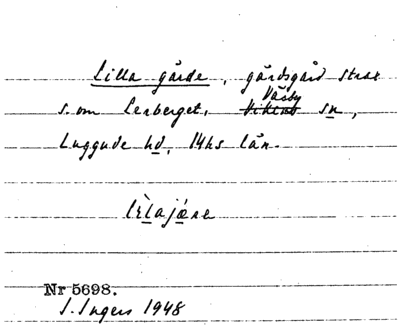 Lilla gårde, gårdsgård strax
Väsby
s. om Lerberget, Vikens sn,
Luggude hd, Mhs län.
Nr 5698.
I. Ingers 1948